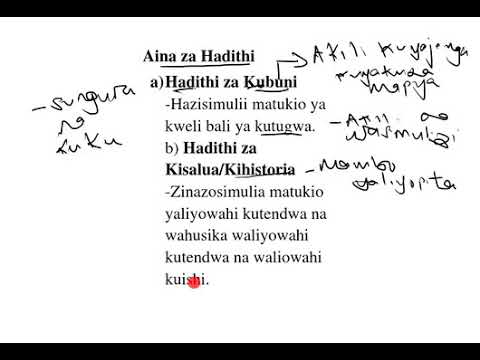 Aina za Hadithi
a)Hadithi za Kubuni
-Hazisimulii matukio ya
kweli bali ya kutugwa.
b) Hadithi za
Kisalua/Kihistoria
-Zinazosimulia matukio
yaliyowahi kutendwa na
wahusika waliyowahi
kutendwa na waliowahi
kuishi.
- Sungura
na
kuku
Akili kuyajenga
mapya
- Akili
wasimulizi
- Mambo
yaliyopita